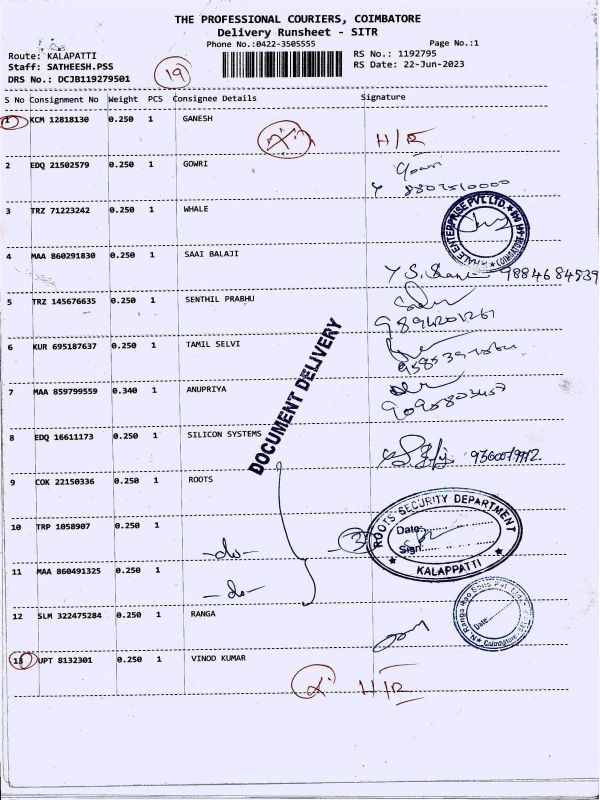 THE PROFESSIONAL COURIERS, COIMBATORE
Delivery Runsheet - SITR
Phone No.:0422-3505555 Page No.:1
Route: KALAPATTI RS No.: 1192795
Staff: SATHEESH.PSS RS Date: 22-Jun-2023
DRS No.: DCJB119279501
19
S No Consignment No Weight PCS Consignee Details Signature
1 KCM 12818130 0.250 1 GANESH
H/R
2 EDQ 21502579 0.250 1 GOWRI
3 TRZ 71223242 0.250 1 WHALE
WHALE ENTERPRISE PVT. LTD. COIMBATORE
4 MAA 860291830 0.250 1 SAAI BALAJI
9884684539
5 TRZ 145676635 0.250 1 SENTHIL PRABHU
6 KUR 695187637 0.250 1 TAMIL SELVI
7 MAA 859799559 0.340 1 ANUPRIYA
DOCUMENT DELIVERY
8 EDQ 16611173 0.250 1 SILICON SYSTEMS
9 COK 22150336 0.250 1 ROOTS
ROOTS SECURITY DEPARTMENT
Date:
Sign:
KALAPPATTI
10 TRP 1058907 0.250 1
-do-
3
11 MAA 860491325 0.250 1
-do-
12 SLM 322475284 0.250 1 RANGA
Date:
Coimbatore
13 UPT 8132301 0.250 1 VINOD KUMAR
H/R